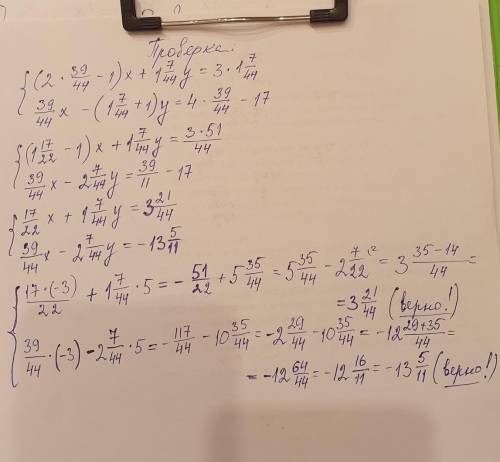 Проверка.
{(2 · 39/44 - 1)x + 1 7/44 y = 3 · 1 7/44
39/44 x - (1 7/44 + 1)y = 4 · 39/44 - 17
{(1 17/22 - 1)x + 1 7/44 y = 3·51/44
39/44 x - 2 7/44 y = 39/11 - 17
{17/22 x + 1 7/44 y = 3 21/44
39/44 x - 2 7/44 y = -13 5/11
{17·(-3)/22 + 1 7/44 · 5 = - 51/22 + 5 35/44 = 5 35/44 - 2 7/22 \2 = 3 35-14/44 =
= 3 21/44 (верно!)
39/44 · (-3) - 2 7/44 · 5 = - 117/44 - 10 35/44 = -2 29/44 - 10 35/44 = -12 29+35/44 =
= -12 64/44 = -12 16/11 = -13 5/11 (верно!)